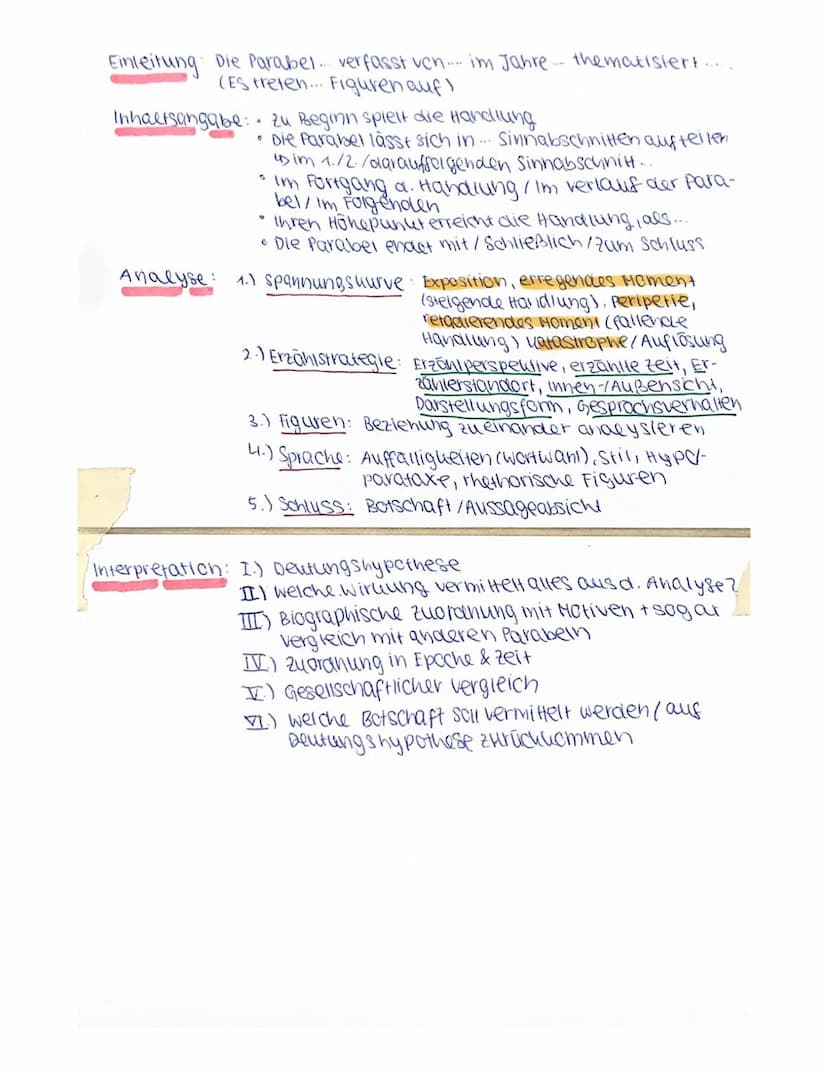 Einleitung: Die Parabel... verfasst von... im Jahre... thematisiert....
(Es treten... Figuren auf)
Inhaltsangabe: • Zu Beginn spielt die Handlung
• Die Parabel lässt sich in... Sinnabschnitten aufteilen
↳ im 1./2./darauffolgenden Sinnabschnitt...
• Im Fortgang d. Handlung / Im verlauf der Para-
bel / Im Folgenden
• Ihren Höhepunkt erreicht die Handlung, als...
• Die Parabel endet mit / Schließlich / Zum Schluss
Analyse: 1.) Spannungskurve: Exposition, erregendes Moment
(steigende Handlung), Peripetie,
retardierendes Moment (fallende
Handlung) Katastrophe / Auflösung
2.) Erzählstrategie: Erzählperspektive, erzählte Zeit, Er-
zählerstandort, Innen-/Außensicht,
Darstellungsform, Gesprächsverhalten
3.) Figuren: Beziehung zueinander analysieren
4.) Sprache: Auffälligkeiten (Wortwahl), Stil, Hypo/-
parataxe, rhethorische Figuren
5.) Schluss: Botschaft / Aussageabsicht
Interpretation: I.) Deutungshypothese
II.) Welche Wirkung vermittelt alles aus d. Analyse?
III.) Biographische Zuordnung mit Motiven + sogar
vergleich mit anderen Parabeln
IV.) Zuordnung in Epoche & Zeit
V.) Gesellschaftlicher vergleich
VI.) Welche Botschaft soll vermittelt werden / auf
Deutungshypothese zurückkommen